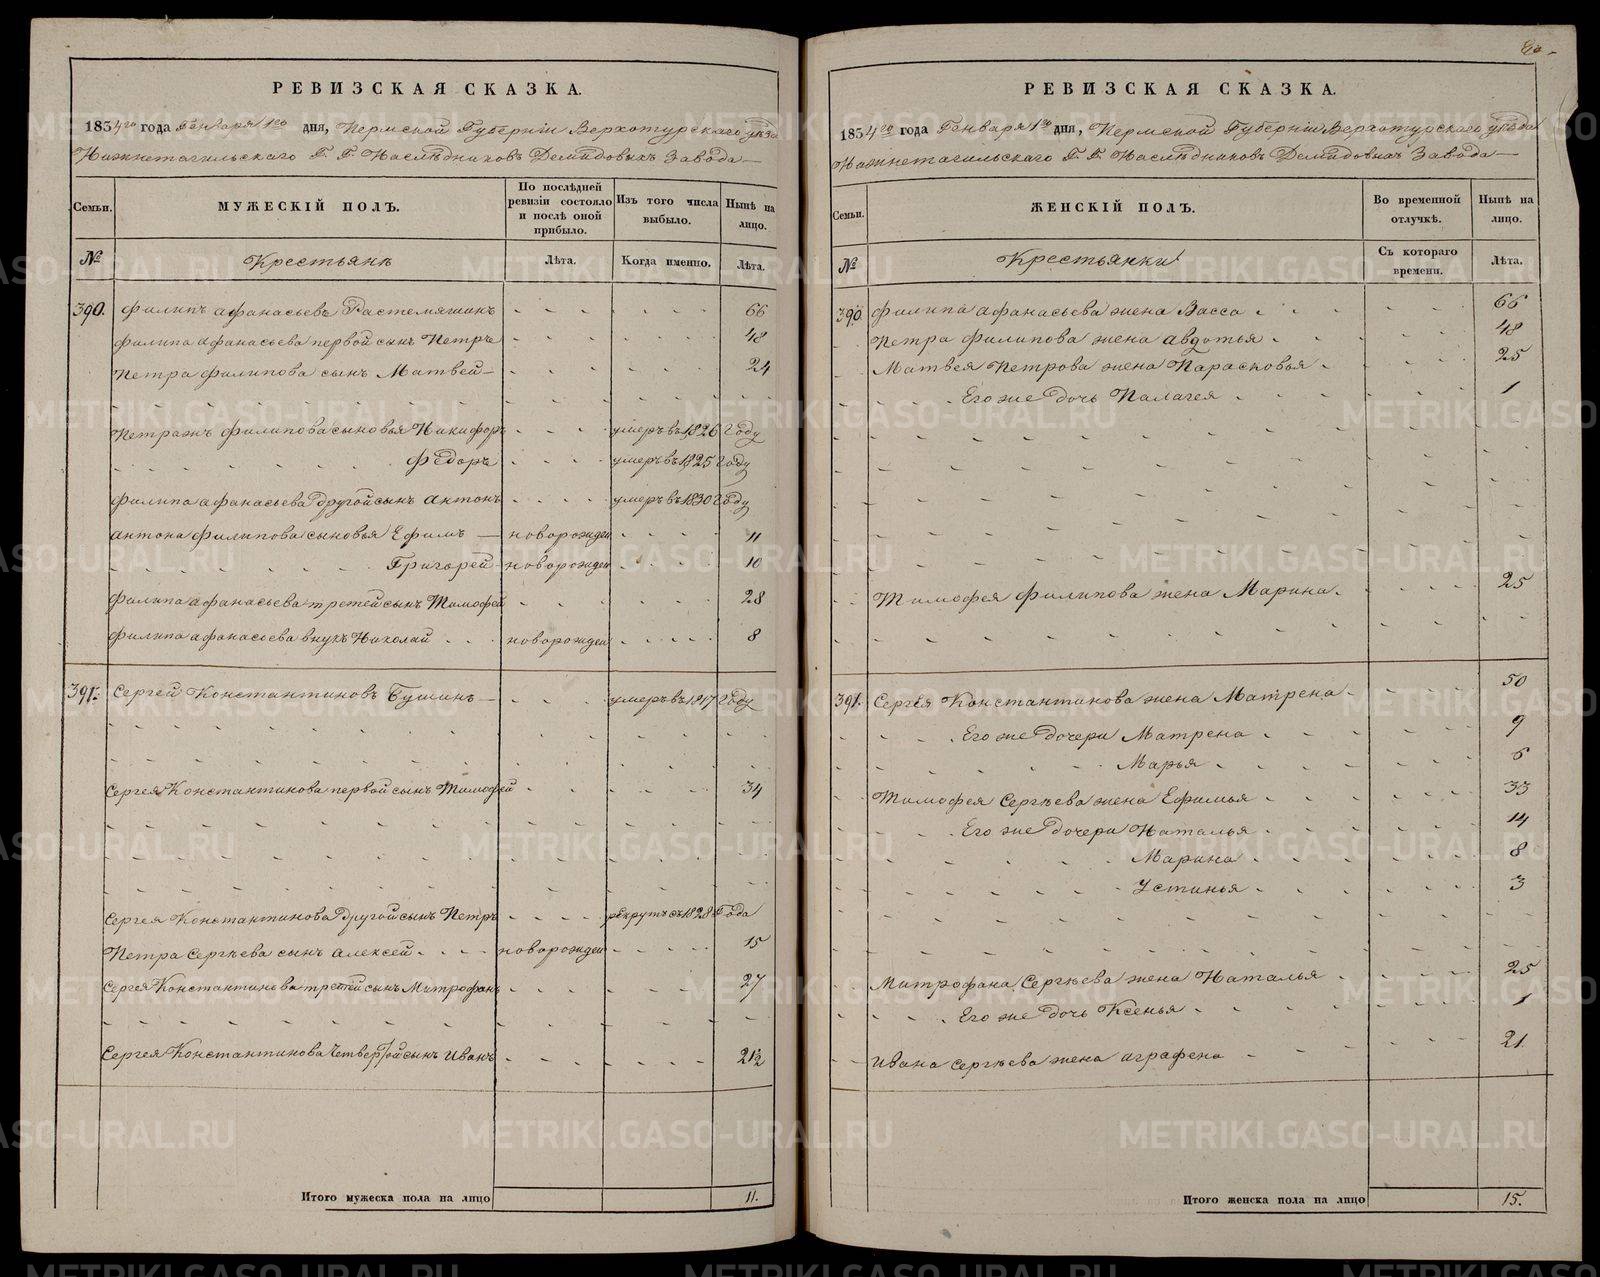 РЕВИЗСКАЯ СКАЗКА.
1834го года Генваря 1го дня, Пермской Губернiи Верхотурскаго уѣзда
Нижнетагильскаго Г. Г. Наслѣдниковъ Демидовыхъ Завода
Семьи.
МУЖЕСКIЙ ПОЛЪ.
По послѣдней ревизiи состояло и послѣ оной прибыло.
Изъ того числа выбыло.
Нынѣ на лицо.
№
Крестьянъ
Лѣта.
Когда именно.
Лѣта.
390. Филипъ Афанасьевъ Растемяшинъ 66
Филипа Афанасьева первой сынъ Петръ 48
Петра Филипова сынъ Матвей 24
Петражъ Филипова сыновья Никифоръ умеръ въ 1826 году
Федоръ умеръ въ 1825 году
Филипа Афанасьева Другой сынъ Антонъ умеръ въ 1830 году
Антона Филипова сыновья Ефимъ новорожден 11
Григорей новорожден 10
Филипа Афанасьева третей сынъ Тимофей 28
Филипа Афанасьева внукъ Николай новорожден 8
391. Сергей Константиновъ Бушинъ умеръ въ 1817 году
Сергея Константинова первой сынъ Тимофей 34
Сергея Константинова Другой сынъ Петръ рекрутъ съ 1828 Года
Петра Сергѣева сынъ Алексей новорожден 15
Сергея Константинова третей сынъ Митрофанъ 27
Сергея Константинова Четвертой сынъ Иванъ 21½
Итого мужеска пола на лицо 11.
РЕВИЗСКАЯ СКАЗКА.
1834го года Генваря 1го дня, Пермской Губернiи Верхотурскаго уѣзда
Нижнетагильскаго Г. Г. Наслѣдниковъ Демидовыхъ Завода
Семьи.
ЖЕНСКIЙ ПОЛЪ.
Во временной отлучкѣ.
Нынѣ на лицо.
№
Крестьянки
Съ котораго времени.
Лѣта.
390. Филипа Афанасьева жена Васса 66
Петра Филипова жена Авдотья 48
Матвея Петрова жена Парасковья 25
Его же Дочь Палагея 1
Тимофея Филипова жена Марина 25
391. Сергея Константинова жена Матрена 50
Его же Дочери Матрена 9
Марья 6
Тимофея Сергѣева жена Ефимья 33
Его же Дочери Наталья 14
Марина 8
Устинья 3
Митрофана Сергѣева жена Наталья 25
Его же дочь Ксенья 1
Ивана Сергѣева жена Аграфена 21
Итого женска пола на лицо 15.
METRIKI.GASO-URAL.RU